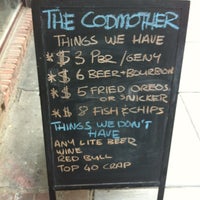 THE CODMOTHER
THINGS WE HAVE
* $3 PBR/GENY
* $6 BEER+BOURBON
* $5 FRIED OREOS
OR SNICKER
* $8 FISH & CHIPS
THINGS WE DON'T
HAVE
ANY LITE BEER
WINE
RED BULL
TOP 40 CRAP